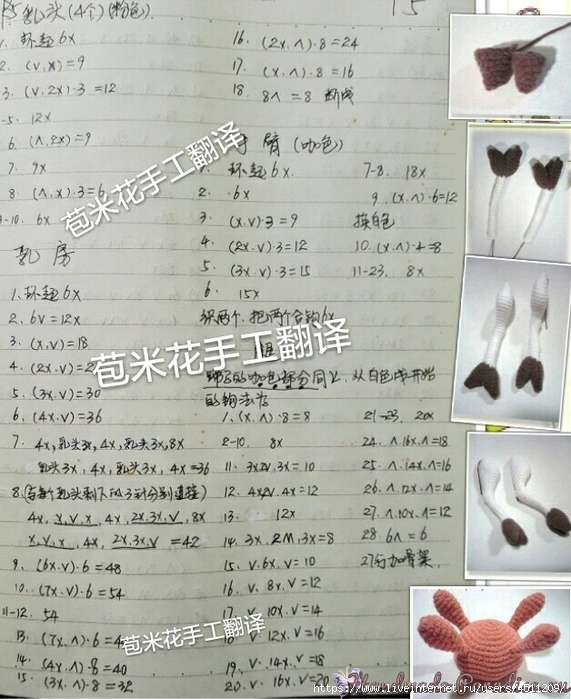 乳头(4个)(粉色)
15
1. 环起6x
2. (v,x)=9
3. (v,2x)·3=12
-5. 12x
6. (∧,2x)=9
7. 9x
8. (∧,x)·3=6
9-10. 6x
乳房
1.环起6x
2. 6v=12x
3. (x,v)=18
4. (2x,v)=2
5. (3x,v)=30
6. (4x,v)=36
7. 4x,乳头3x,4x,乳头3x,8x
乳头3x,4x,乳头3x,4x=36
8.(与每个乳头剩下的3针分别连接)
4x, x,v,x, 4x, 2x,3x,v, 8x
x,v,x, 4x, 2x,3x,v =42
9. (6x,v)·6=48
10. (7x,v)·6=54
11-12. 54
13. (7x,∧)·6=4
14. (4x,∧)·8=40
15. (3x,∧)·8=32
16. (2x,∧)·8=24
17. (x,∧)·8=16
18. 8∧=8 断线
臂(咖色)
环起6x
2. 6x
3. (x,v)·3=9
4. (2x,v)·3=12
5. (3x,v)·3=15
6. 15x
织两个,把两个合钩6x
7-8. 18x
9. (x,∧)·6=12
换白色
10. (x,∧)·4=8
11-23. 8x
腿
的咖色部分同上,从白色线开始
的钩法为
1. (x,∧)·8=8
2-10. 8x
11. 3x,2v,3x=10
12. 4x,2v,4x=12
13. 12x
14. 3x,2M,3x=8
15. v,6x,v=10
16. v,8x,v=12
17. v,10x,v=14
18. v,12x,v=16
19. v,14x,v=18
20. v,16x,v=20
21-23. 20x
24. ∧,16x,∧=18
25. ∧,14x,∧=16
26. ∧,12x,∧=14
27. ∧,10x,∧=12
28. 6∧=6
27行加骨架
苞米花手工翻译
苞米花手工翻译
苞米花手工翻译
https://www.liveinternet.ru/users/4011209/